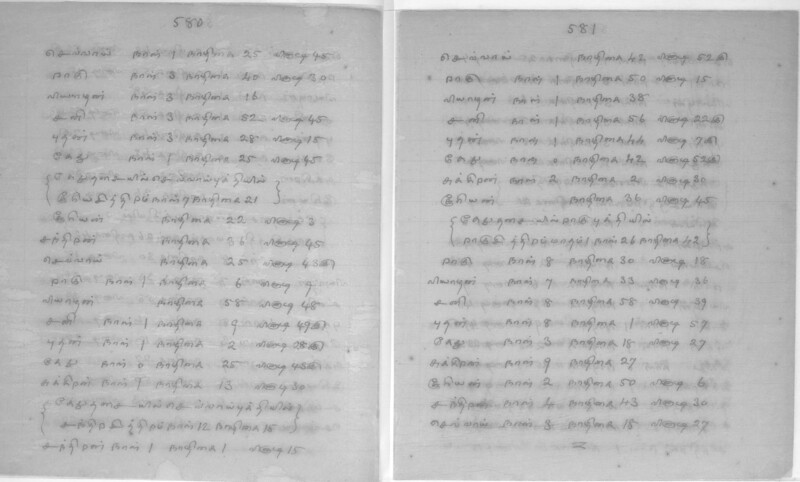 580
செவ்வாய் நாள் 1 நாழிகை 25 வினாடி 45
ராகு நாள் 3 நாழிகை 40 வினாடி 30
வியாழன் நாள் 3 நாழிகை 16
சனி நாள் 3 நாழிகை 52 வினாடி 45
புதன் நாள் 3 நாழிகை 28 வினாடி 15
கேது நாள் 1 நாழிகை 25 வினாடி 45
கேதுதசையில் செவ்வாய்புத்தியில்
நாள் 7 நாழிகை 21
நாழிகை 22 வினாடி 3
சந்திரன் நாழிகை 36 வினாடி 45
செவ்வாய் நாழிகை 25 வினாடி 43
ராகு நாள் 1 நாழிகை 6 வினாடி 9
வியாழன் நாழிகை 58 வினாடி 48
சனி நாள் 1 நாழிகை 9 வினாடி 49
புதன் நாள் 1 நாழிகை 2 வினாடி 28
கேது நாள் 0 நாழிகை 25 வினாடி 43
சுக்கிரன் நாள் 1 நாழிகை 13 வினாடி 30
கேதுதசையில் செவ்வாய்புத்தியில்
நாள் 12 நாழிகை 15
சந்திரன் நாள் 1 நாழிகை 1 வினாடி 15
581
செவ்வாய் நாழிகை 42 வினாடி 52
ராகு நாள் 1 நாழிகை 50 வினாடி 15
வியாழன் நாள் 1 நாழிகை 38
சனி நாள் 1 நாழிகை 56 வினாடி 22
புதன் நாள் 1 நாழிகை 44 வினாடி 7
கேது நாள் 0 நாழிகை 42 வினாடி 52
சுக்கிரன் நாள் 2 நாழிகை 2 வினாடி 30
நாழிகை 36 வினாடி 45
கேதுதசையில் ராகுபுத்தியில்
நாள் 26 நாழிகை 42
ராகு நாள் 8 நாழிகை 30 வினாடி 18
வியாழன் நாள் 7 நாழிகை 33 வினாடி 36
சனி நாள் 8 நாழிகை 58 வினாடி 39
புதன் நாள் 8 நாழிகை 1 வினாடி 57
கேது நாள் 3 நாழிகை 18 வினாடி 27
சுக்கிரன் நாள் 9 நாழிகை 27
நாள் 2 நாழிகை 50 வினாடி 6
சந்திரன் நாள் 4 நாழிகை 43 வினாடி 30
செவ்வாய் நாள் 3 நாழிகை 18 வினாடி 27